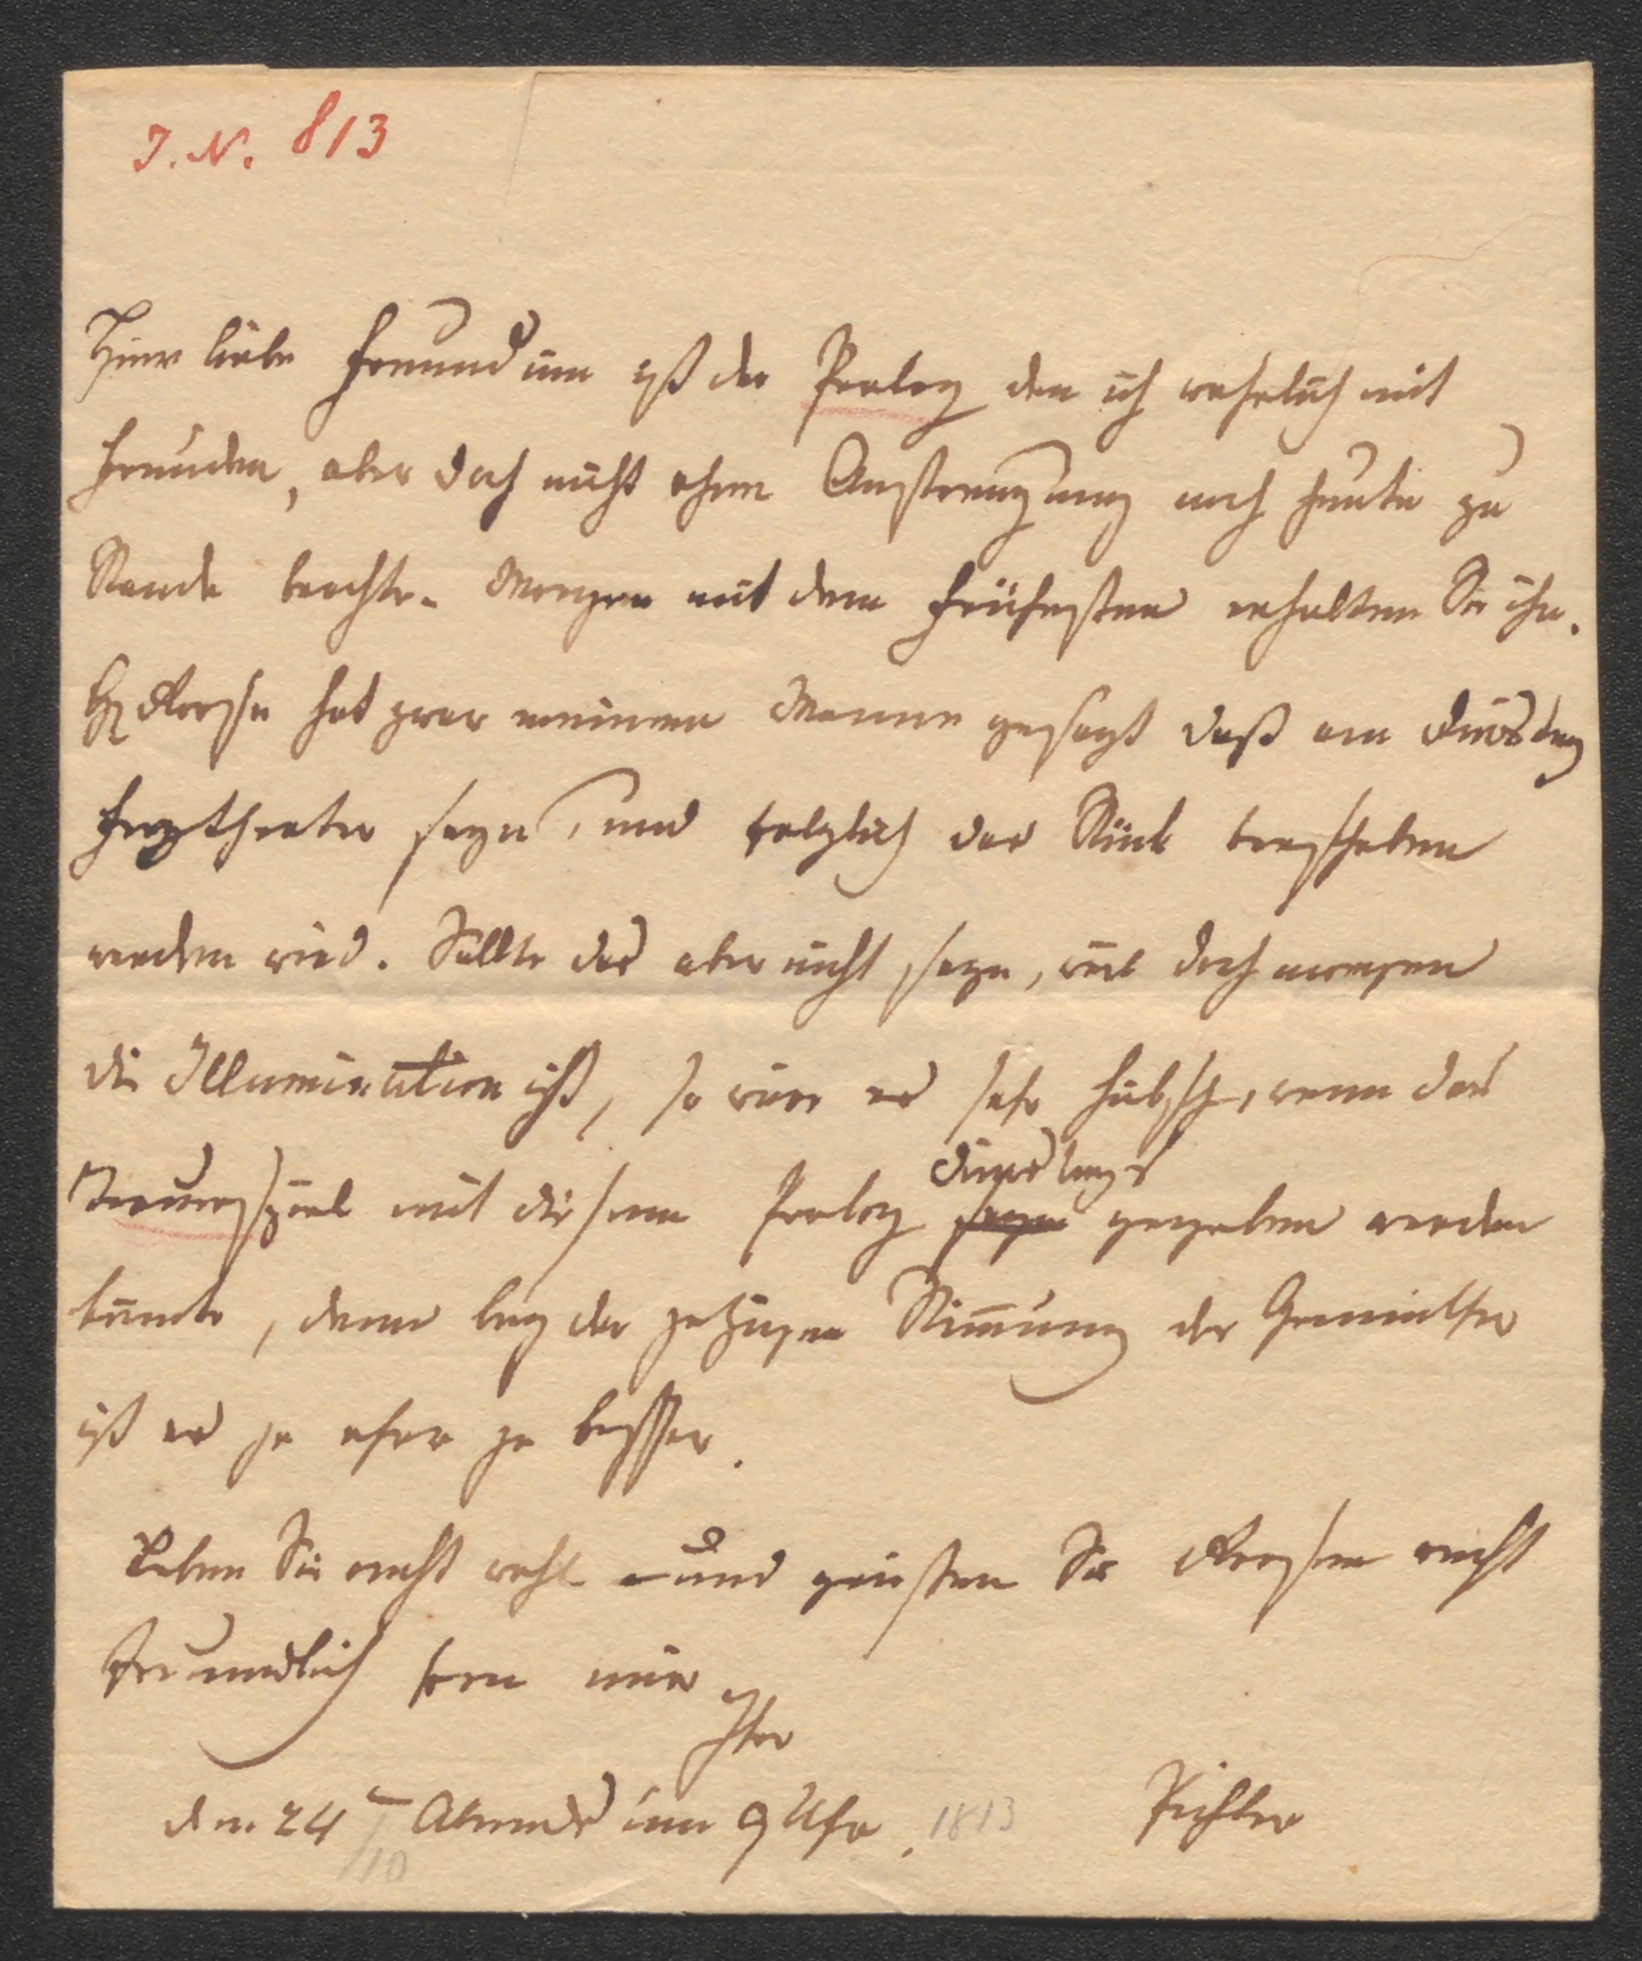 J. N. 813
Hier liebe Freundinn ist der Prolog den ich wahrlich mit
Freuden, aber doch nicht ohne Anstrengung noch heute zu
Stande brachte. Morgen mit dem frühesten erhalten Sie ihn.
H. hat zwar meinem Manne gesagt daß am Dinstag
freytheater seyn, und folglich das Stück
werden wird. Sollte das aber nicht seyn, weil doch morgen
die Illumination ist, so wäre es sehr hübsch, wenn das
Trauerspiel mit diesem Prolog Dinstags gegeben werden
könnte, denn bey der jetzigen Stimmung der Gemüther
ist es je eher je besser.
Leben Sie recht wohl und grüssen Sie recht
freundlich von mir
Ihre
den 24 Abends um 9 Uhr. 1813 Pichler
/10